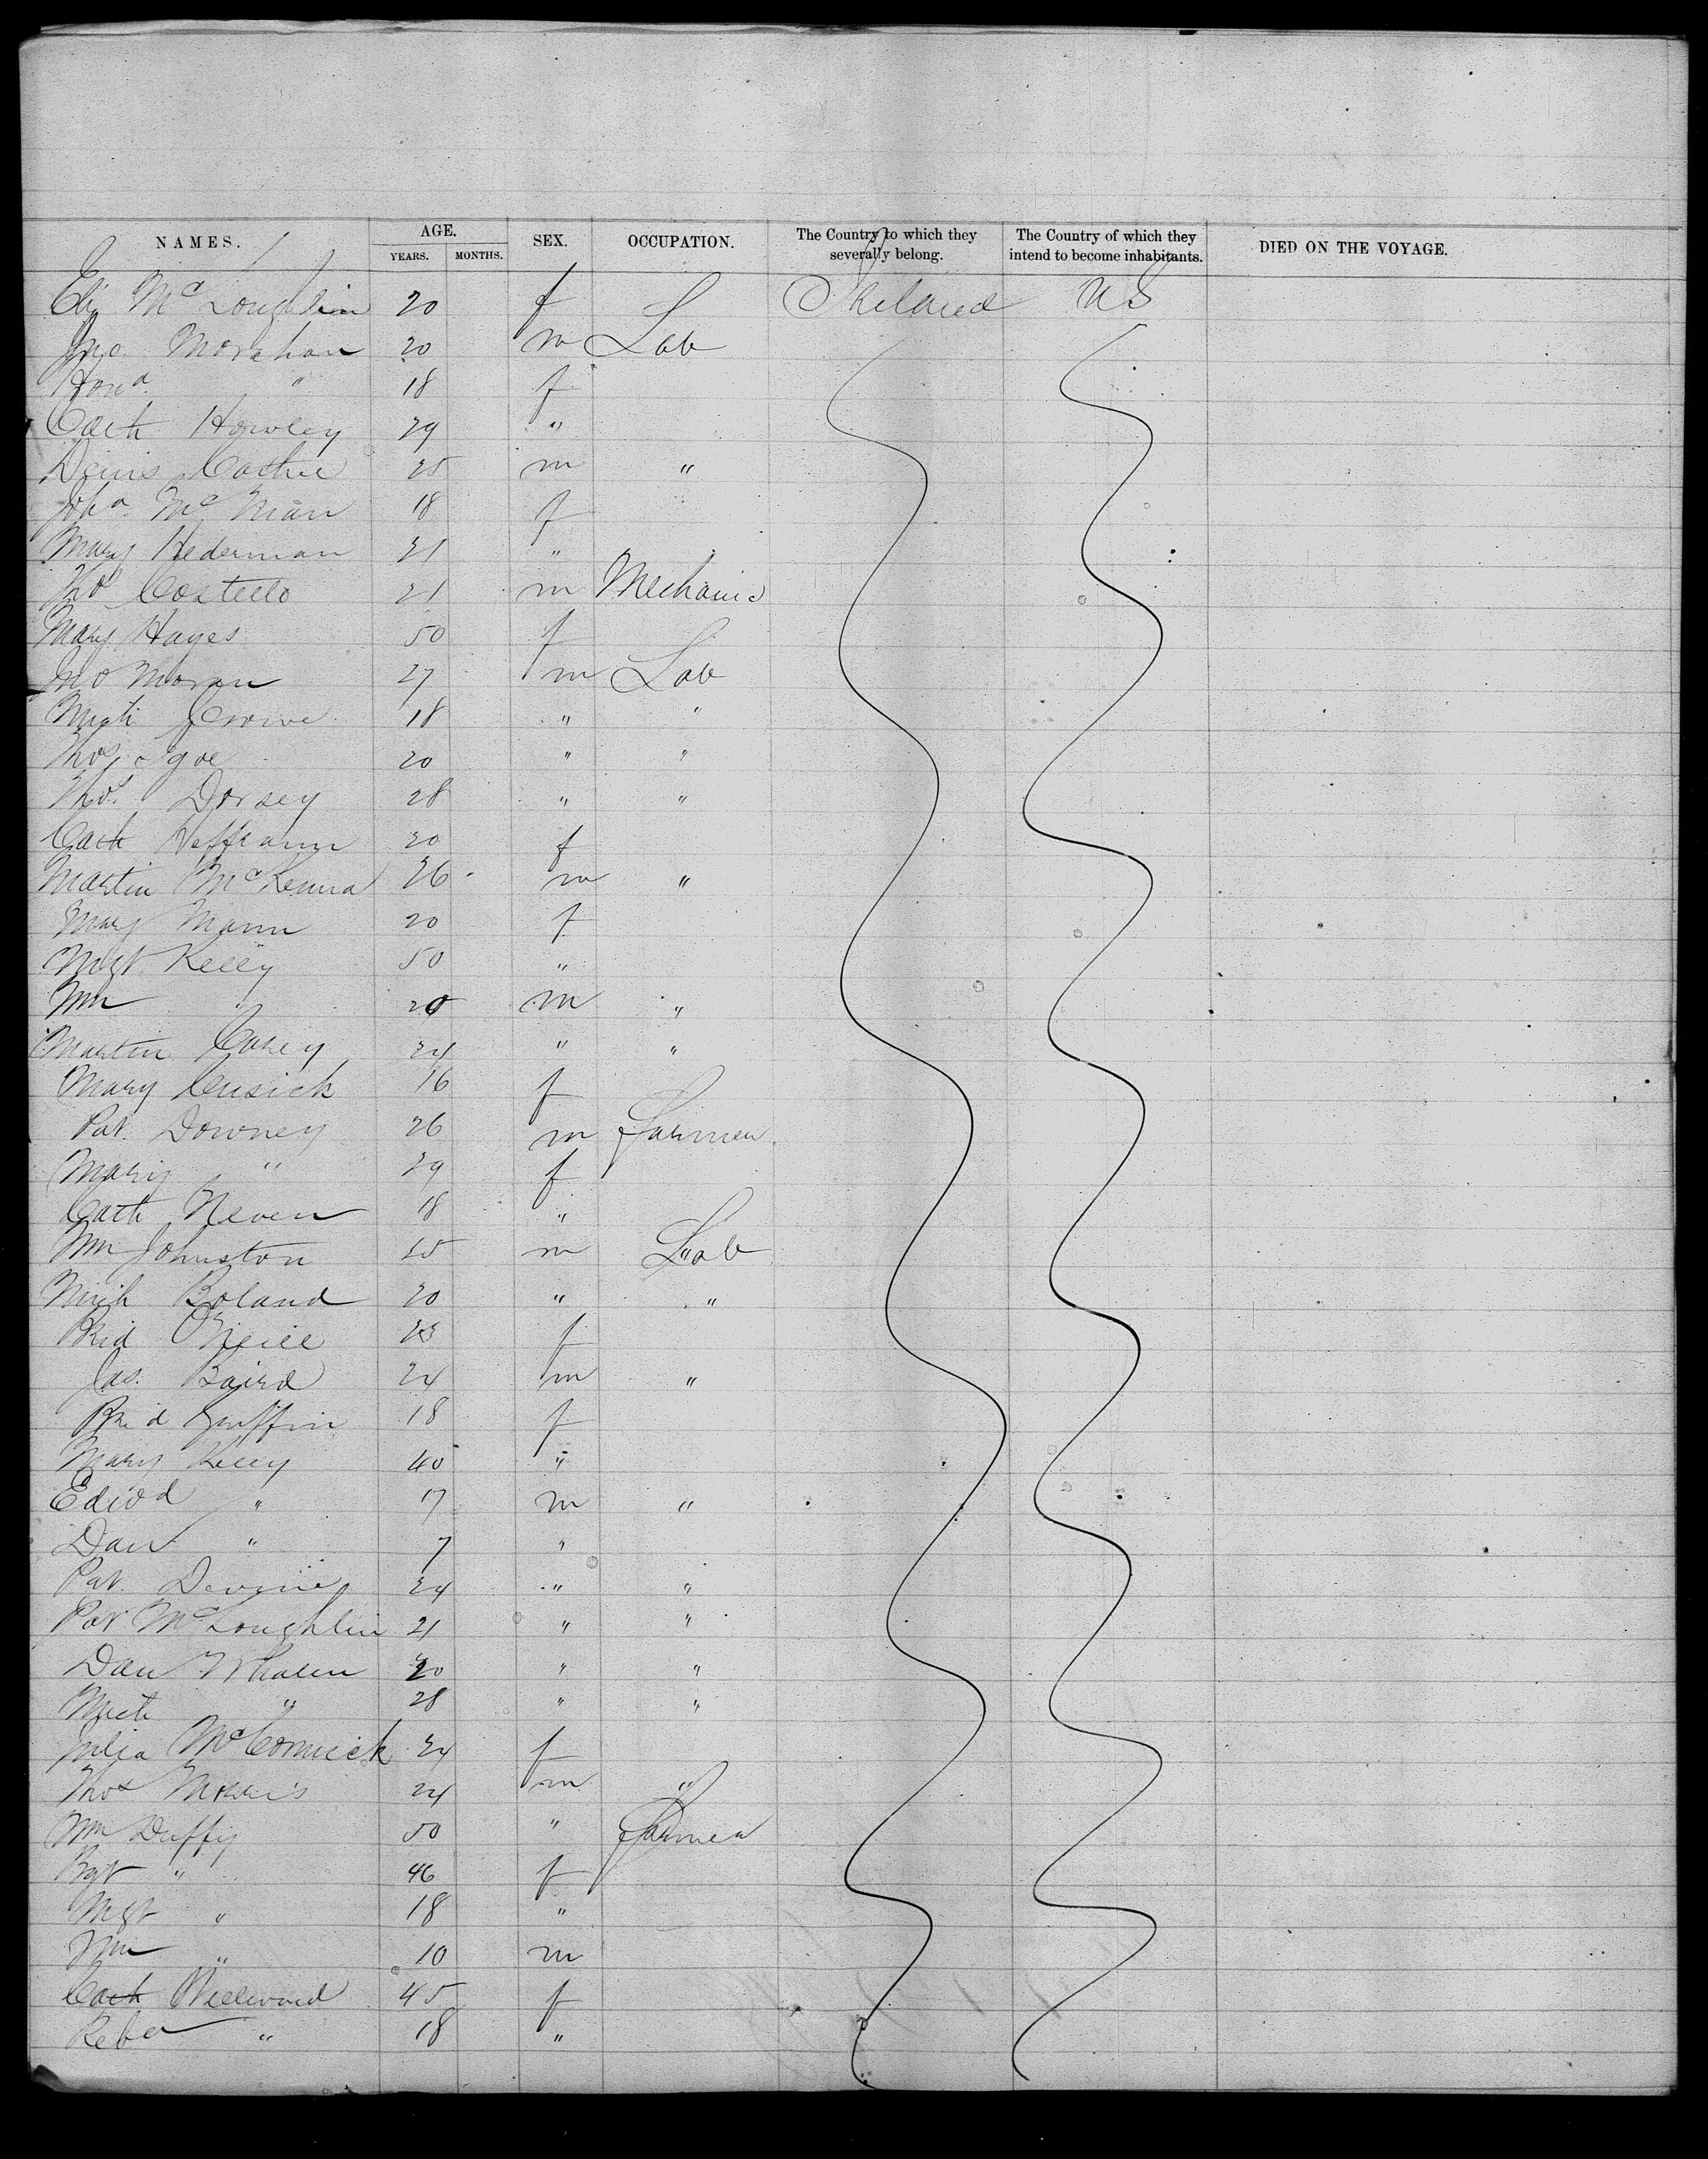 NAMES. AGE. SEX. OCCUPATION. The Country to which they severally belong. The Country of which they intend to become inhabitants. DIED ON THE VOYAGE.
YEARS. MONTHS.
Eliz McLoughlin 20 f Ireland US
Jno. Morahan 20 m Lab
Hona. " 18 f
Cath Howley 29 "
Denis 25 m "
Joha. Mc 18 f
Mary Hederman 21 "
Thos Costello 21 m Mechanic
Mary Hayes 50 f
Jno Moran 27 m Lab
18 " "
Thos Igoe 20 " "
Thos. Dorsey 28 " "
Cath 20 f
Martin McKenna 26 m "
Mary Mann 20 f
Mgt Kelly 50 "
Wm " 20 m "
Martin Casey 24 " "
Mary Cusick 16 f
Pat. Downey 26 m Farmer
Mary " 29 f
Cath Neven 18 "
Wm Johnston 25 m Lab
Mich Boland 20 " "
Brid O'Neill 23 f
Jas. Baird 24 m "
Brid Griffin 18 f
Mary Kelly 40 "
Edwd " 17 m "
Dan " 7 "
Pat. Devine 24 " "
Pat McLoughlin 21 " "
Dan Whalen 20 " "
Mich " 28 " "
Julia McCormick 24 f
Thos Morris 24 m "
Wm Duffy 50 " Farmer
Bgt " 46 f
Mgt " 18 "
Wm " 10 m
Cath Wellwood 45 f
Reba " 18 "